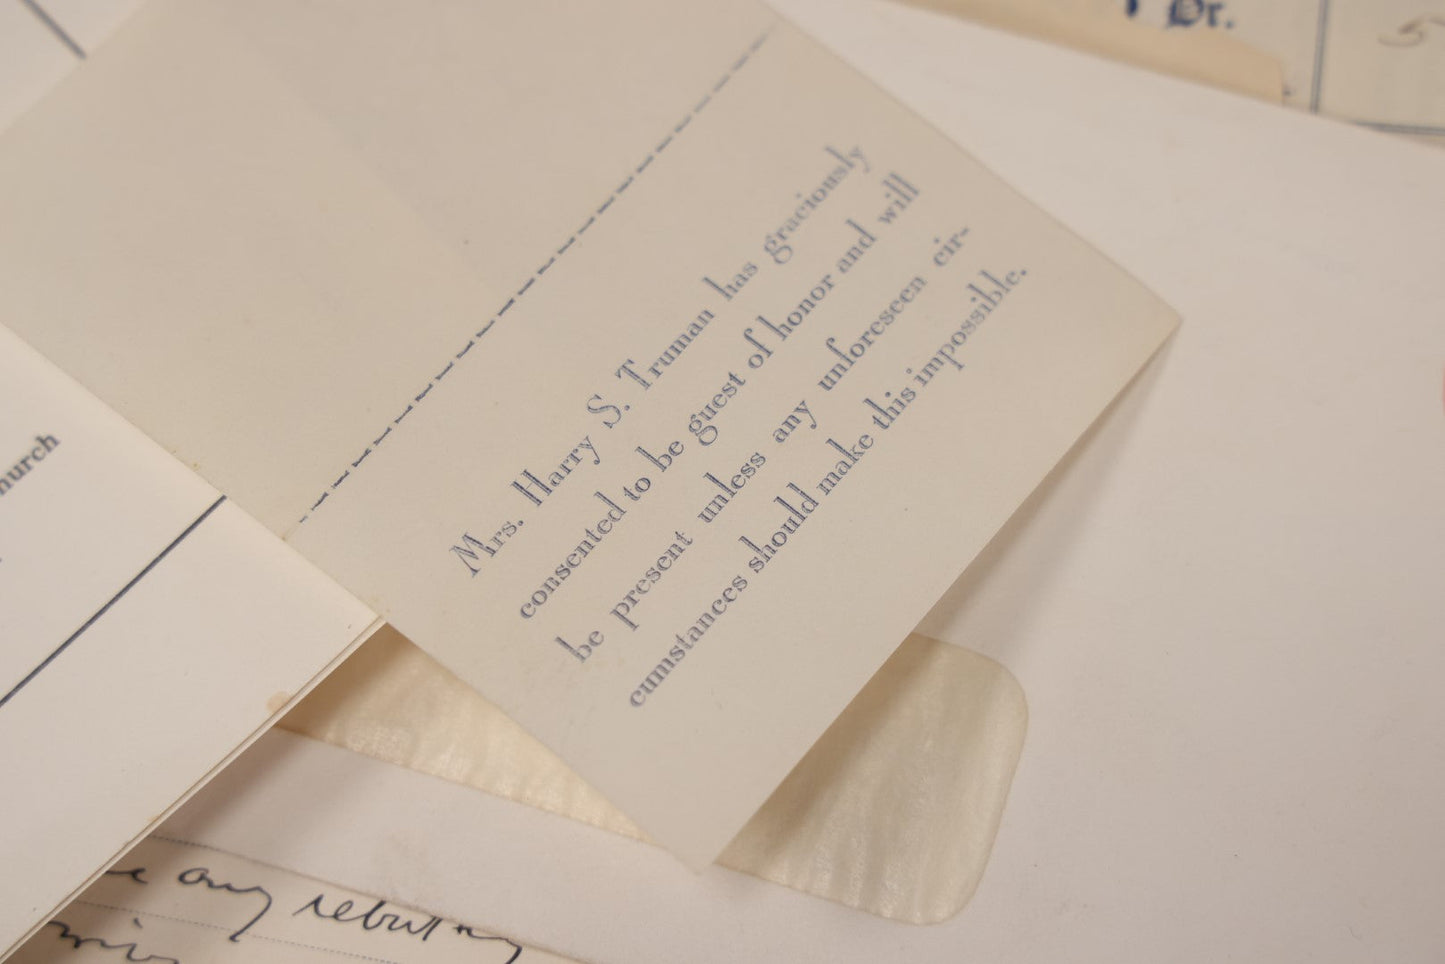 Dr.
5
Mrs. Harry S. Truman has graciously
consented to be guest of honor and will
be present unless any unforeseen cir-
cumstances should make this impossible.
hurch
any